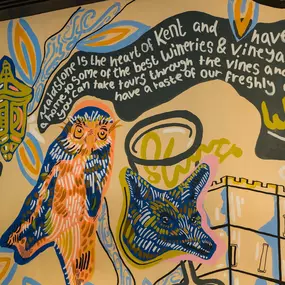 Maidstone is the heart of Kent and have
home to some of the best wineries & vineya
you can take tours through the vines and
have a taste of our freshly